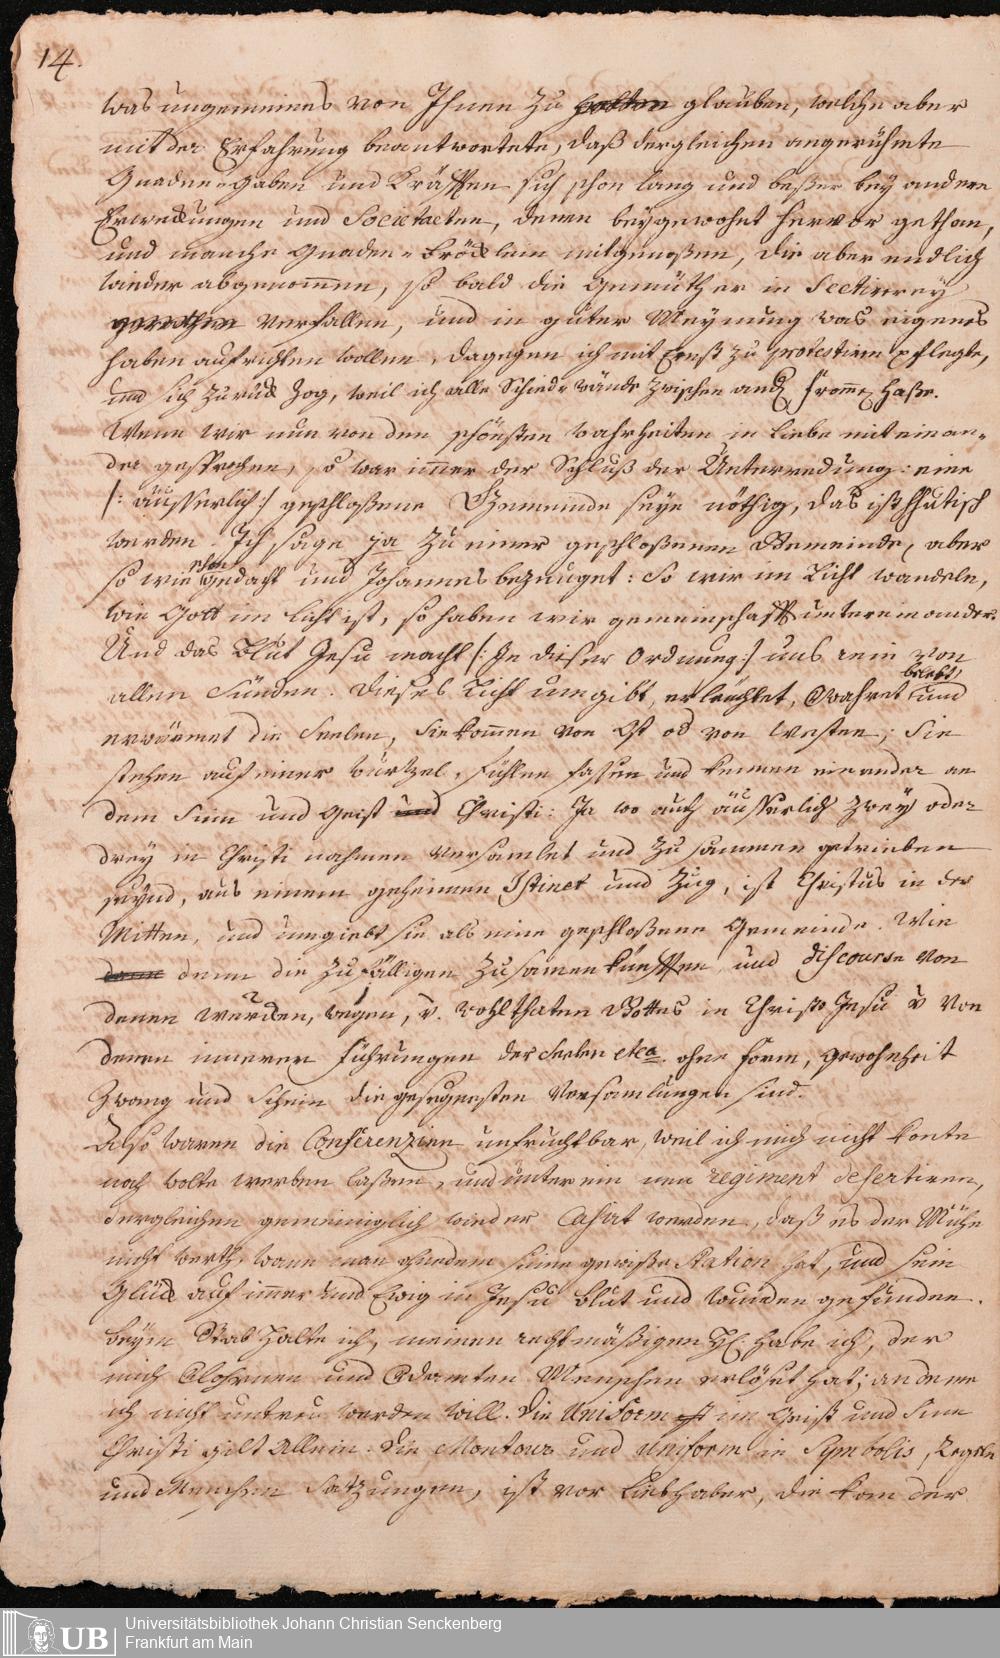 14.
was ungemeines von Ihnen zu halten glauben, welche aber
mit der Erfahrung beantwortete, daß dergleichen angerühmte
Gnaden-Gaben und Kräfften sich schon lang und beßer bey andern
Erweckungen und Societaeten, denen beygewohnt hervor gethan,
und manche Gnaden-Bröcklein mitgenoßen, die aber endlich
wieder abgenommen, so bald die Gemüther in Sectirerey
gerathen verfallen, und in guter Meynung was eigenes
haben aufrichten wollen, dagegen ich mit Ernst zu protestiren pflegte,
und sich zurück zog, weil ich alle Schied-wände zwischen and. Frommen haße.
Wenn wir nun von den schönsten wahrheiten in Liebe mit einan-
der gesprochen, so war immer der Schluß der Unterredung: eine
/: äusserlich :/ geschloßene Gemeinde seye nöthig, das ist
werden. Ich sage ja zu einer geschloßenen Gemeinde, aber
so wie schon gedacht und Johannes bezeuget: So wir im Licht wandeln,
wie Gott im Licht ist, so haben wir gemeinschafft untereinander.
Und das Blut Jesu macht /: In dieser Ordnung :/ uns rein von
allen Sünden. Dieses Licht umgibt, erleuchtet, bewahret belebt, und
erwärmet die Seelen, sie kommen von Ost od von Westen; Sie
stehen auf einer Wurtzel, fühlen faßen und kennen einander an
dem Sinn und Geist und Christi: Ja wo auch äusserlich zwey oder
drey in Christi nahmen versamlet und zusammen getrieben
seynd, aus einem geheimen Istinct und Zug, ist Christus in der
Mitten, und umgiebt sie als eine geschloßene Gemeinde. Wie
dann denn die zufälligen Zusamenkünfften und discourse von
denen Wercken, wegen, u. wohlthaten Gottes in Christo Jesu u von
denen inneren Führungen der Seelen etca. ohne Form, gewohnheit
Zwang und Schein die geseegnesten Versamlungen sind.
Also waren die Conferenzien unfruchtbar, weil ich mich nicht konte
noch wolte werben laßen, und unter ein neu regiment desertiren,
dergleichen gemeiniglich wieder Casirt werden, daß es der Mühe
nicht werth, wann man ohnedem seine gewiße Station hat, und sein
Glück auf immer und Ewig in Jesu Blut und Wunden gefunden.
Beym Stab halte ich, meinen rechtmäßigen H. habe ich, der
mich verlohrnen und verdamten Menschen erlöset hat; an deme
ich nicht untreu werden will. Die Uniform ist im Geist und Sinn
Christi gilt Allein: Die Montour und uniform in Symbolis, Regeln
und Menschen Satzungen, ist vor Liebhaber, die kan der
UB
Universitätsbibliothek Johann Christian Senckenberg
Frankfurt am Main